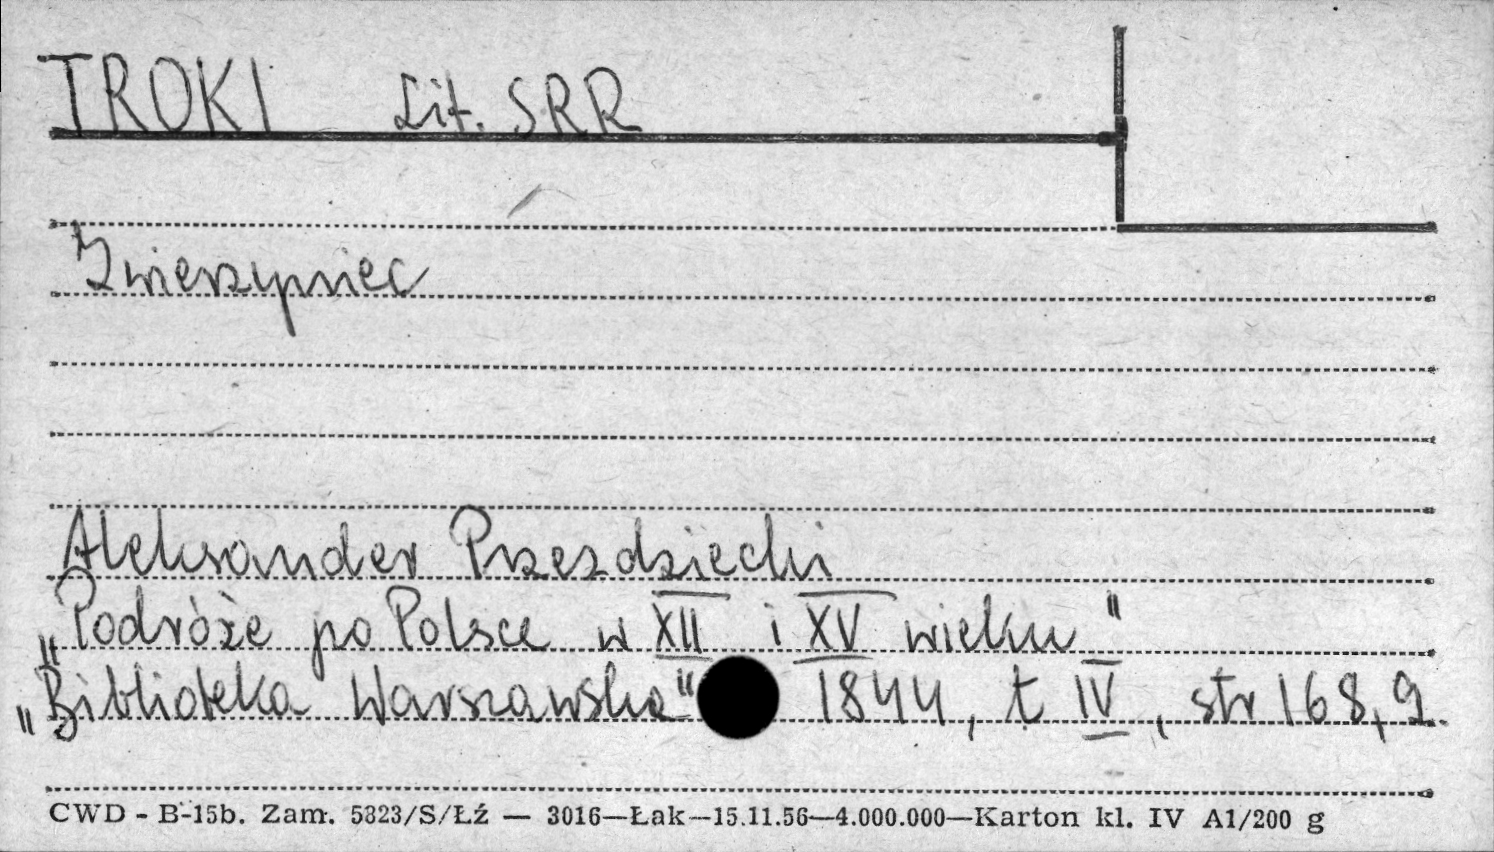 TROKI Lit. SRR
Zwierzyniec
Aleksander Przezdziecki
„Podróże po Polsce w XII i XV wieku"
„Biblioteka Warszawska" 1844, t IV, str 168,9.
CWD - B-15b. Zam. 5323/S/Łź — 3016—Łak—15.11.56—4.000.000—Karton kl. IV A1/200 g